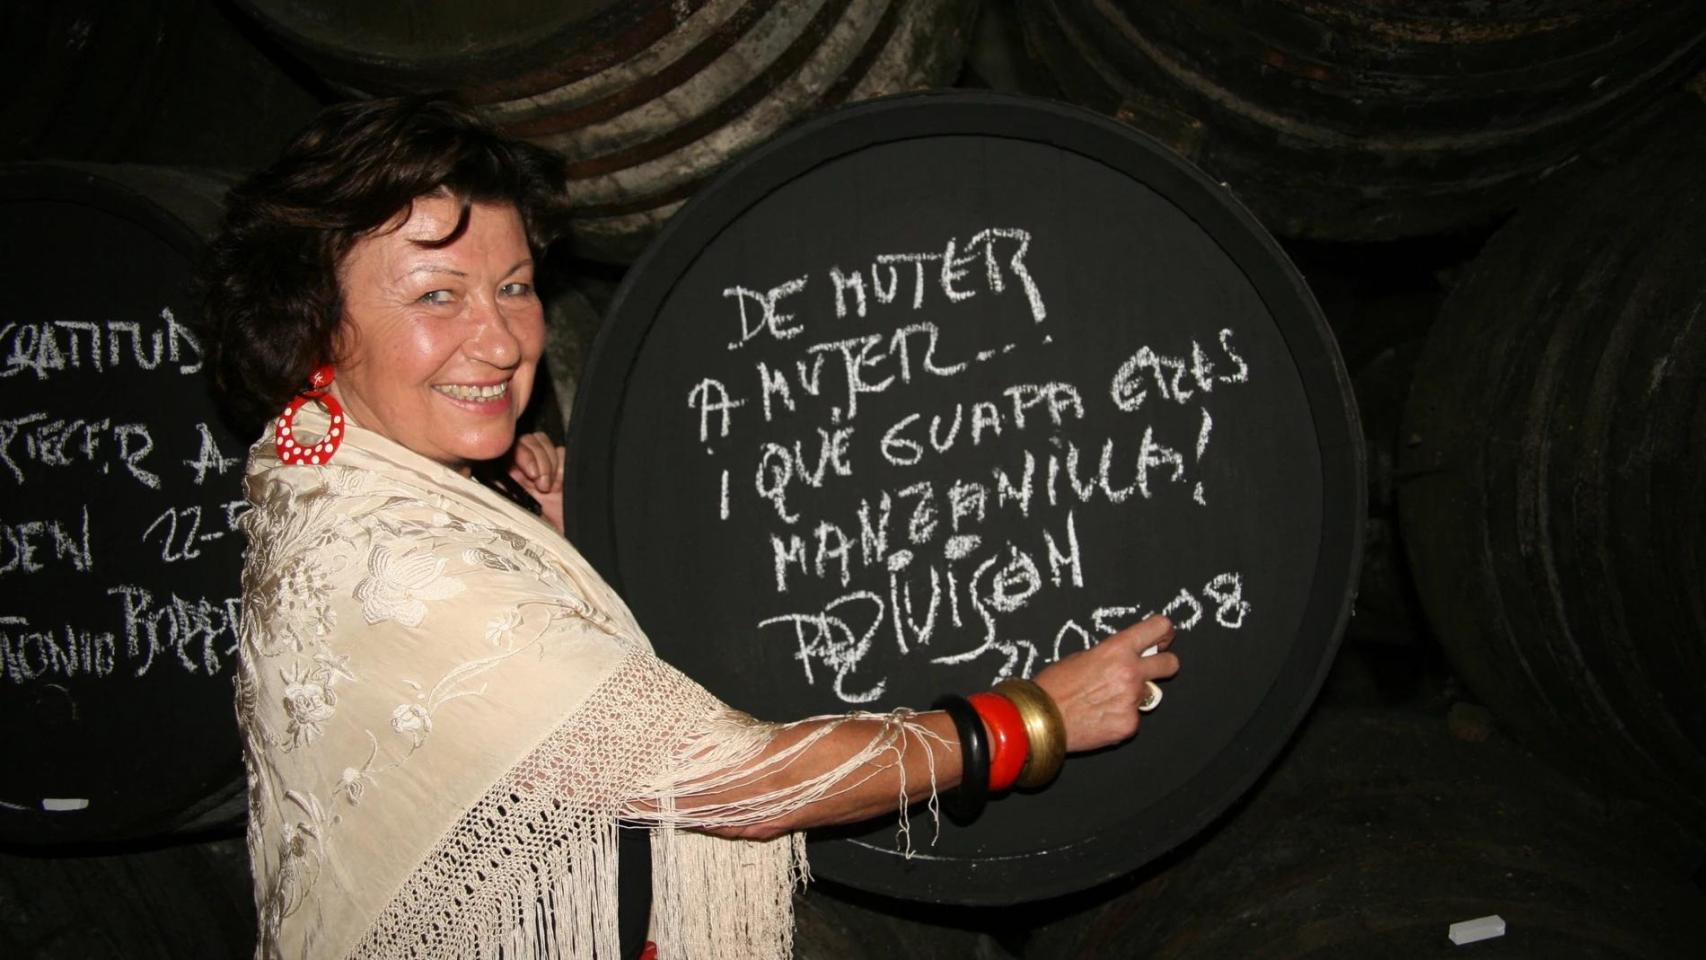 GRATITUD
A
DEN 22-5
DE MUJER
A MUJER....
¡ QUÉ GUAPA ERES
MANZANILLA!
PAZ IVISON
22-05-08